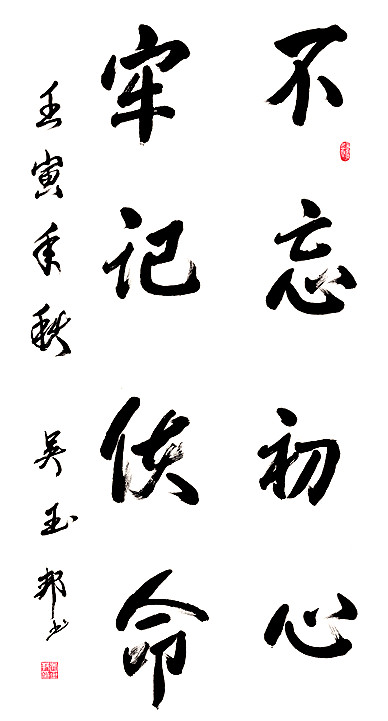 不忘初心
牢记使命
壬寅年秋 吴玉邦书